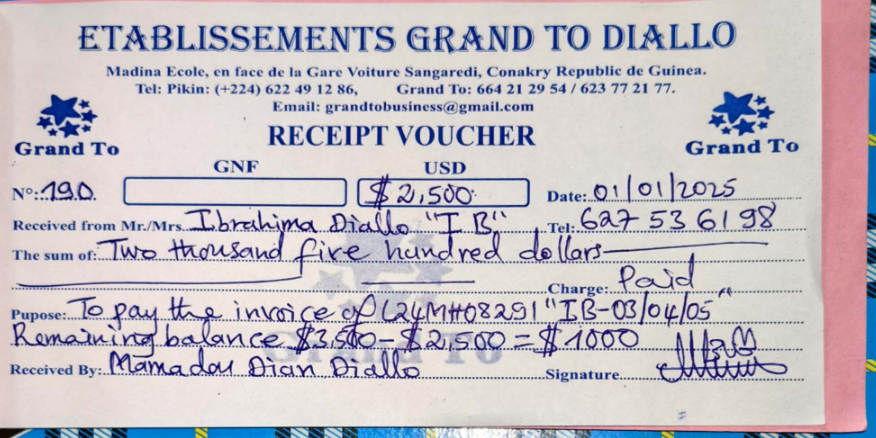 ETABLISSEMENTS GRAND TO DIALLO
Madina Ecole, en face de la Gare Voiture Sangaredi, Conakry Republic de Guinea.
Tel: Pikin: (+224) 622 49 12 86, Grand To: 664 21 29 54 / 623 77 21 77.
Email: grandtobusiness@gmail.com
Grand To RECEIPT VOUCHER Grand To
GNF USD
N°: 190. $2,500 Date: 01/01/2025
Received from Mr./Mrs. Ibrahima Diallo "I B" Tel: 627 53 61 98
The sum of: Two thousand five hundred dollars
Charge: Paid
Pupose: To pay the invoice of L24MH08291 "IB-03/04/05"
Remaining balance $3,500 - $2,500 = $1000
Received By: Mamadou Dian Diallo Signature